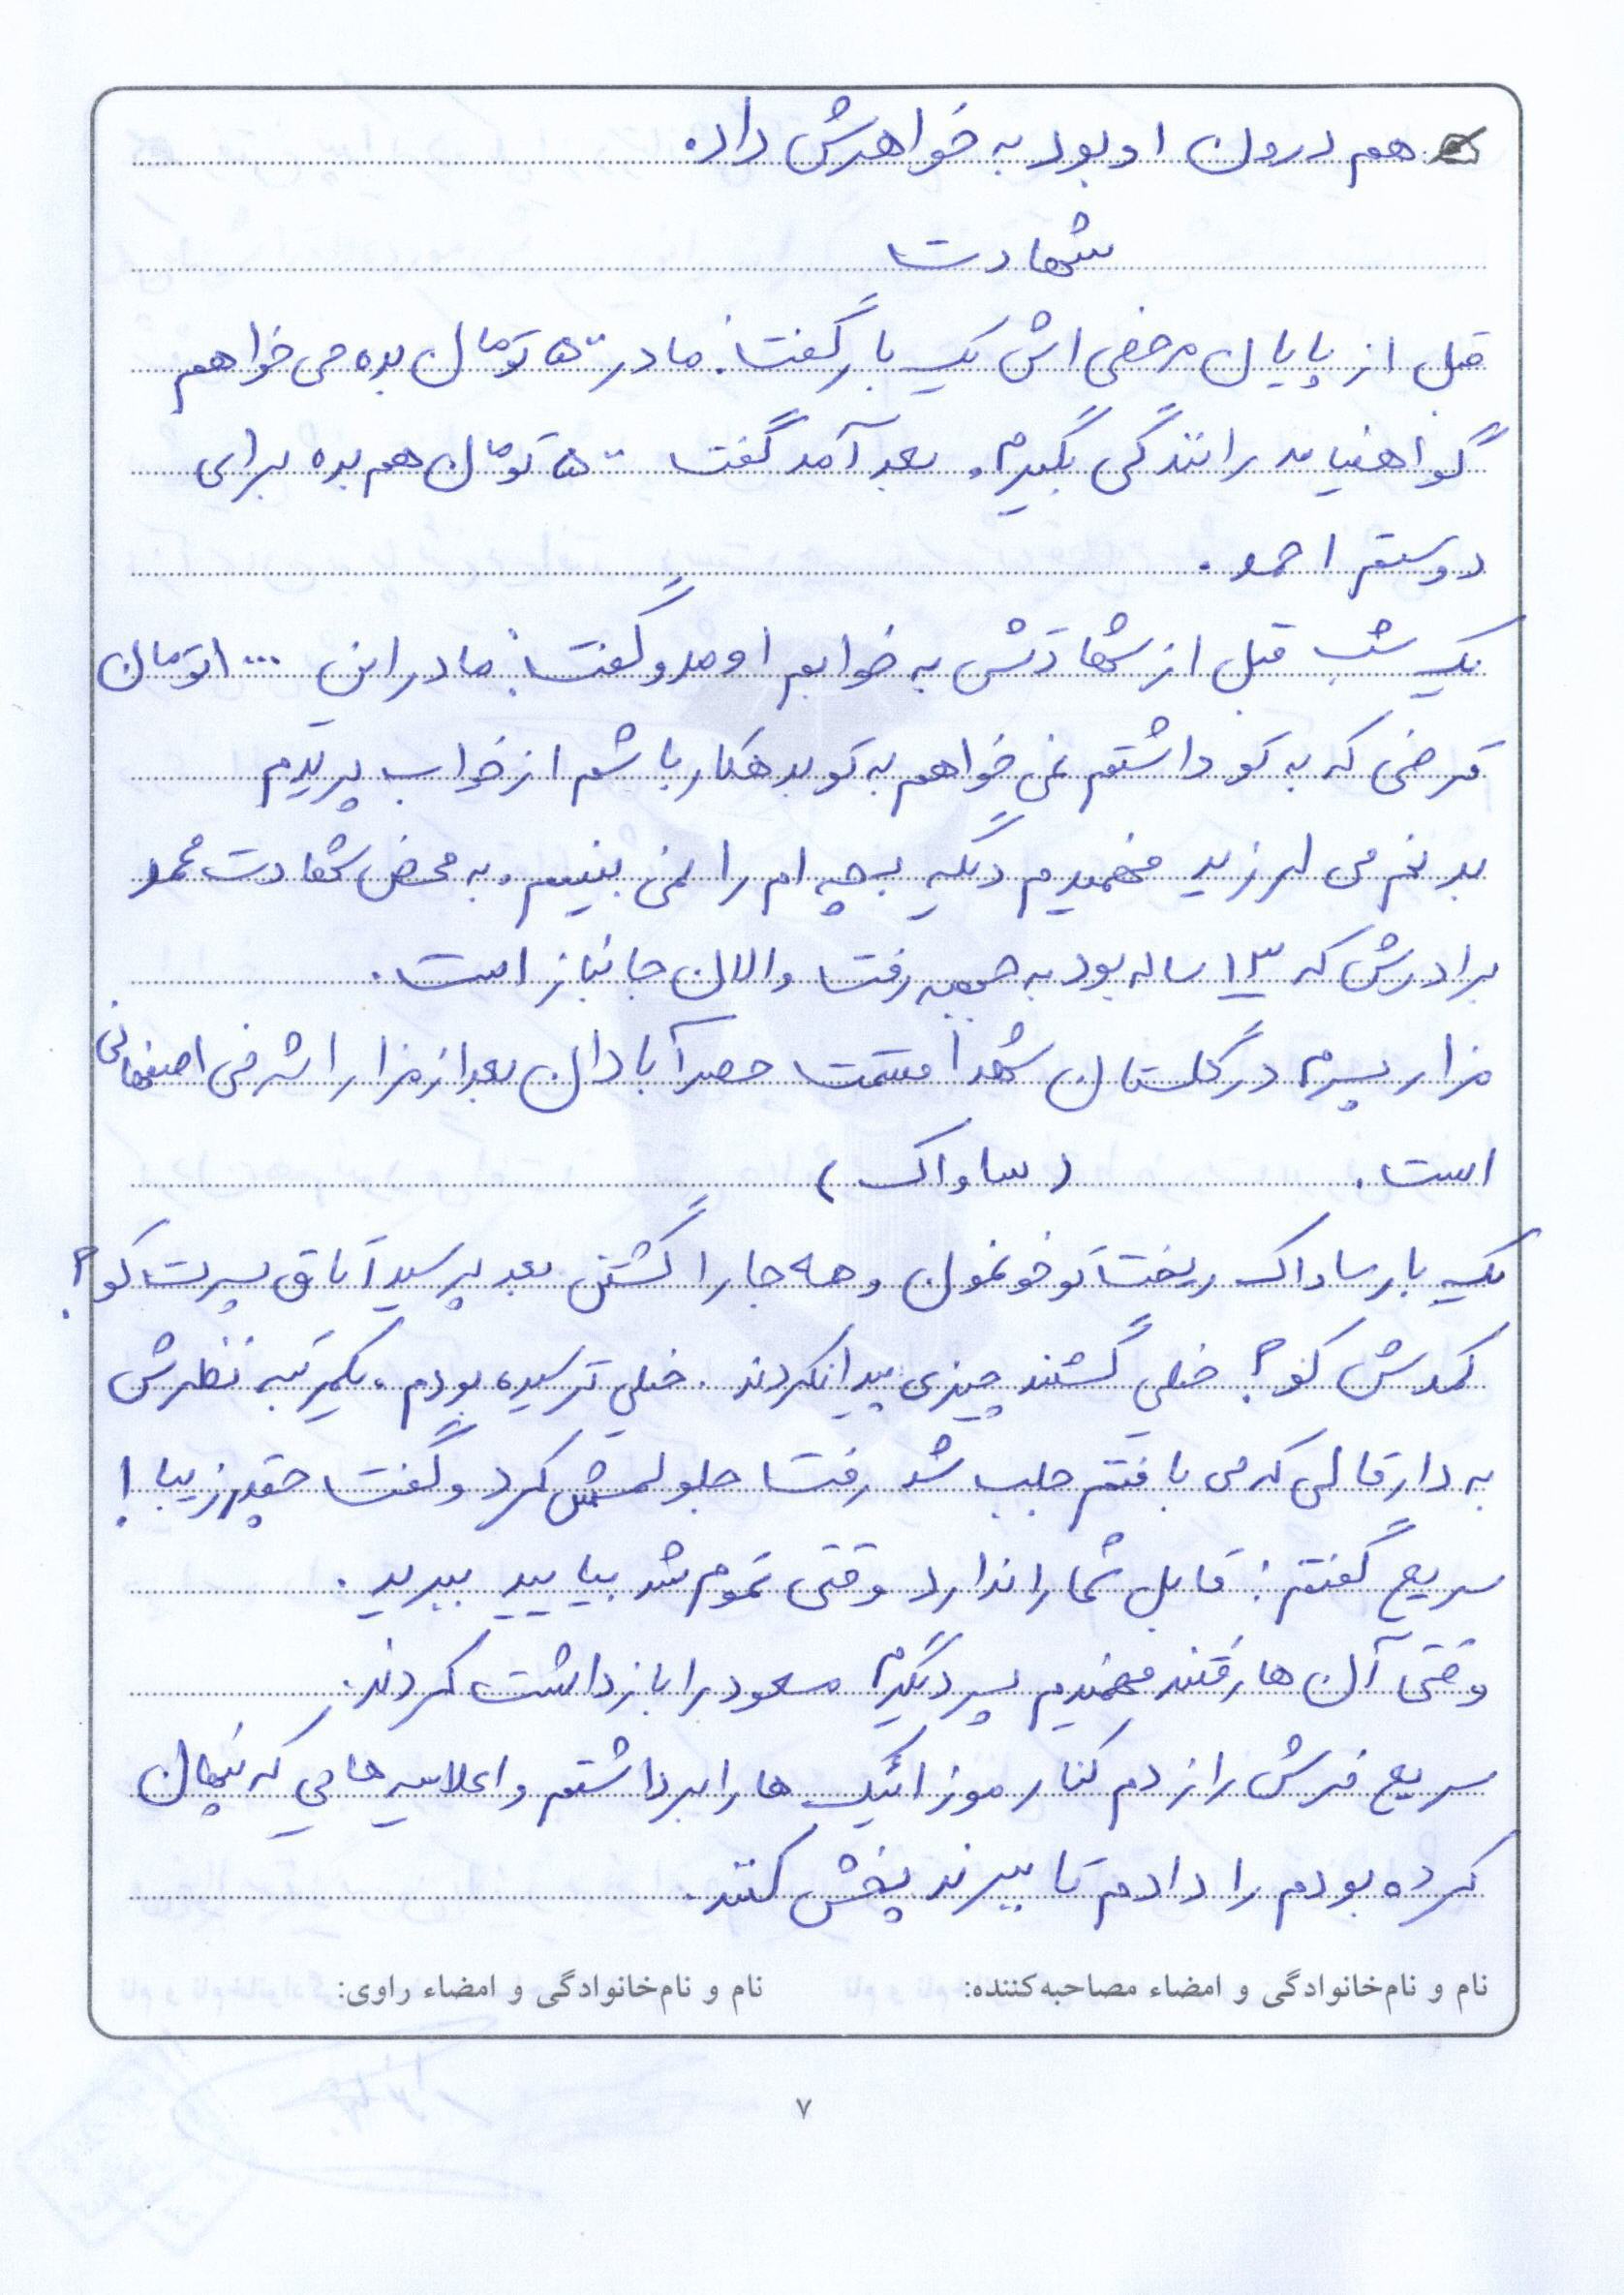 هم درون او بود به خواهرش داد.
شهادت
قبل از پایان مرخصی اش یک بار گفت: مادر ۵۰۰ تومان بده می خواهم
گواهنیامه رانندگی بگیرم. بعد آمد گفت ۵۰۰ تومان هم بده برای
دوستم احمد.
یک شب قبل از شهادتش به خوابم اومد و گفت: مادر این ۱۰۰۰ تومان
قرضی که به تو داشتم نمی خواهم به تو بدهکار باشم از خواب پریدم
بدنم می لرزید فهمیدم دیگه بچه ام را نمی بینم. به محض شهادت محمد
برادرش که ۱۳ ساله بود به جبهه رفت و الان جانباز است.
مزار پسرم در گلستان شهدا قسمت حصرآبادان بعد از مزار اشرفی اصفهانی
است. (ساواک)
یک بار ساواک ریخت تو خونمون و همه جا را گشتن بعد پرسید اتاق پسرت کو؟
کمدش کو؟ خیلی گشتند چیزی پیدا نکردند. خیلی ترسیده بودم. یکمرتبه نظرش
به دار قالی که می بافتم جلب شد رفت جلو لمسش کرد و گفت چقدر زیبا!
سریع گفتم: قابل شما را ندارد وقتی تموم شد بیایید ببرید.
وقتی آن ها رفتند فهمیدم پسر دیگرم مسعود را بازداشت کردند.
سریع فرش را زدم کنار موزائیک ها را برداشتم و اعلامیه هایی که پنهان
کرده بودم را دادم تا ببرند پخش کنند.
نام و نام‌خانوادگی و امضاء مصاحبه‌کننده: نام و نام‌خانوادگی و امضاء راوی:
۷